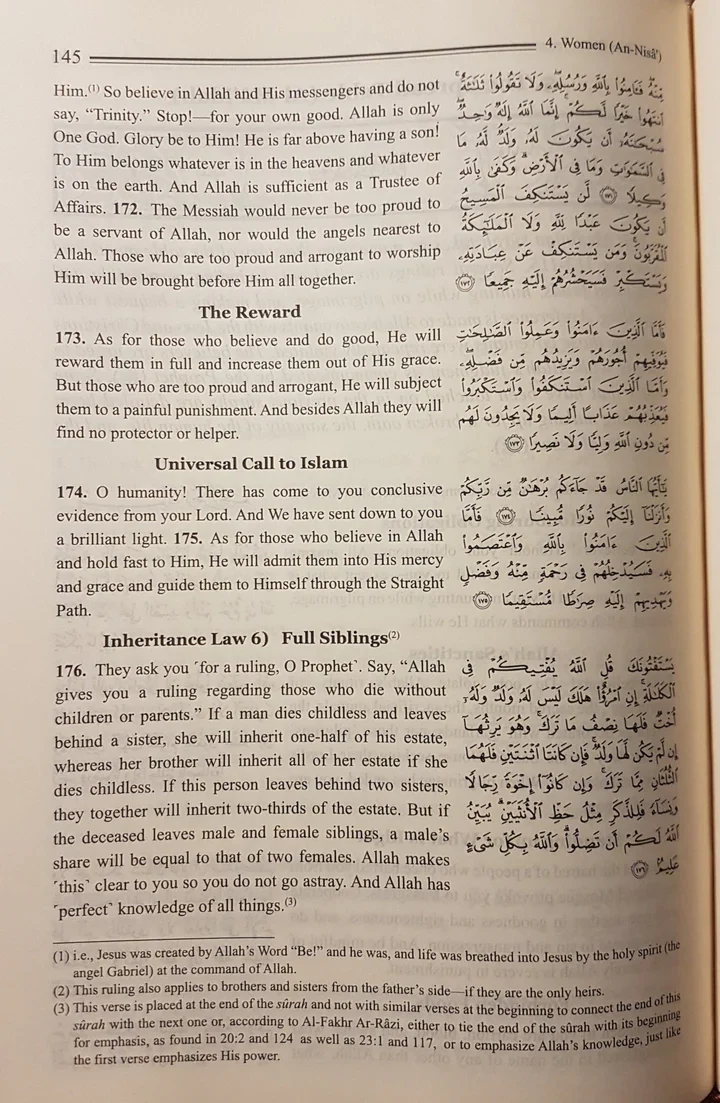 145
4. Women (An-Nisâ')
Him.(1) So believe in Allah and His messengers and do not
say, “Trinity.” Stop!—for your own good. Allah is only
One God. Glory be to Him! He is far above having a son!
To Him belongs whatever is in the heavens and whatever
is on the earth. And Allah is sufficient as a Trustee of
Affairs. 172. The Messiah would never be too proud to
be a servant of Allah, nor would the angels nearest to
Allah. Those who are too proud and arrogant to worship
Him will be brought before Him all together.
The Reward
173. As for those who believe and do good, He will
reward them in full and increase them out of His grace.
But those who are too proud and arrogant, He will subject
them to a painful punishment. And besides Allah they will
find no protector or helper.
Universal Call to Islam
174. O humanity! There has come to you conclusive
evidence from your Lord. And We have sent down to you
a brilliant light. 175. As for those who believe in Allah
and hold fast to Him, He will admit them into His mercy
and grace and guide them to Himself through the Straight
Path.
Inheritance Law 6) Full Siblings(2)
176. They ask you ˹for a ruling, O Prophet˺. Say, “Allah
gives you a ruling regarding those who die without
children or parents.” If a man dies childless and leaves
behind a sister, she will inherit one-half of his estate,
whereas her brother will inherit all of her estate if she
dies childless. If this person leaves behind two sisters,
they together will inherit two-thirds of the estate. But if
the deceased leaves male and female siblings, a male’s
share will be equal to that of two females. Allah makes
˹this˺ clear to you so you do not go astray. And Allah has
˹perfect˺ knowledge of all things.(3)
مِّنْهُ ۖ فَـَٔامِنُوا۟ بِٱللَّهِ وَرُسُلِهِۦ ۖ وَلَا تَقُولُوا۟ ثَلَـٰثَةٌ ۚ
ٱنتَهُوا۟ خَيْرًا لَّكُمْ ۚ إِنَّمَا ٱللَّهُ إِلَـٰهٌ وَٰحِدٌ ۖ
سُبْحَـٰنَهُۥٓ أَن يَكُونَ لَهُۥ وَلَدٌ ۘ لَّهُۥ مَا
فِى ٱلسَّمَـٰوَٰتِ وَمَا فِى ٱلْأَرْضِ ۗ وَكَفَىٰ بِٱللَّهِ
وَكِيلًا ١٧١ لَّن يَسْتَنكِفَ ٱلْمَسِيحُ
أَن يَكُونَ عَبْدًا لِّلَّهِ وَلَا ٱلْمَلَـٰٓئِكَةُ
ٱلْمُقَرَّبُونَ ۚ وَمَن يَسْتَنكِفْ عَنْ عِبَادَتِهِۦ
وَيَسْتَكْبِرْ فَسَيَحْشُرُهُمْ إِلَيْهِ جَمِيعًا ١٧٢
فَأَمَّا ٱلَّذِينَ ءَامَنُوا۟ وَعَمِلُوا۟ ٱلصَّـٰلِحَـٰتِ
فَيُوَفِّيهِمْ أُجُورَهُمْ وَيَزِيدُهُم مِّن فَضْلِهِۦ ۖ
وَأَمَّا ٱلَّذِينَ ٱسْتَنكَفُوا۟ وَٱسْتَكْبَرُوا۟
فَيُعَذِّبُهُمْ عَذَابًا أَلِيمًا وَلَا يَجِدُونَ لَهُم
مِّن دُونِ ٱللَّهِ وَلِيًّا وَلَا نَصِيرًا ١٧٣
يَـٰٓأَيُّهَا ٱلنَّاسُ قَدْ جَآءَكُم بُرْهَـٰنٌ مِّن رَّبِّكُمْ
وَأَنزَلْنَآ إِلَيْكُمْ نُورًا مُّبِينًا ١٧٤ فَأَمَّا
ٱلَّذِينَ ءَامَنُوا۟ بِٱللَّهِ وَٱعْتَصَمُوا۟
بِهِۦ فَسَيُدْخِلُهُمْ فِى رَحْمَةٍ مِّنْهُ وَفَضْلٍ
وَيَهْدِيهِمْ إِلَيْهِ صِرَٰطًا مُّسْتَقِيمًا ١٧٥
يَسْتَفْتُونَكَ قُلِ ٱللَّهُ يُفْتِيكُمْ فِى
ٱلْكَلَـٰلَةِ ۚ إِنِ ٱمْرُؤٌا۟ هَلَكَ لَيْسَ لَهُۥ وَلَدٌ وَلَهُۥٓ
أُخْتٌ فَلَهَا نِصْفُ مَا تَرَكَ ۚ وَهُوَ يَرِثُهَآ
إِن لَّمْ يَكُن لَّهَا وَلَدٌ ۚ فَإِن كَانَتَا ٱثْنَتَيْنِ فَلَهُمَا
ٱلثُّلُثَانِ مِمَّا تَرَكَ ۚ وَإِن كَانُوٓا۟ إِخْوَةً رِّجَالًا
وَنِسَآءً فَلِلذَّكَرِ مِثْلُ حَظِّ ٱلْأُنثَيَيْنِ ۗ يُبَيِّنُ
ٱللَّهُ لَكُمْ أَن تَضِلُّوا۟ ۗ وَٱللَّهُ بِكُلِّ شَىْءٍ
عَلِيمٌۢ ١٧٦
(1) i.e., Jesus was created by Allah’s Word “Be!” and he was, and life was breathed into Jesus by the holy spirit (the
angel Gabriel) at the command of Allah.
(2) This ruling also applies to brothers and sisters from the father’s side—if they are the only heirs.
(3) This verse is placed at the end of the sûrah and not with similar verses at the beginning to connect the end of this
sûrah with the next one or, according to Al-Fakhr Ar-Râzi, either to tie the end of the sûrah with its beginning
for emphasis, as found in 20:2 and 124 as well as 23:1 and 117, or to emphasize Allah’s knowledge, just like
the first verse emphasizes His power.